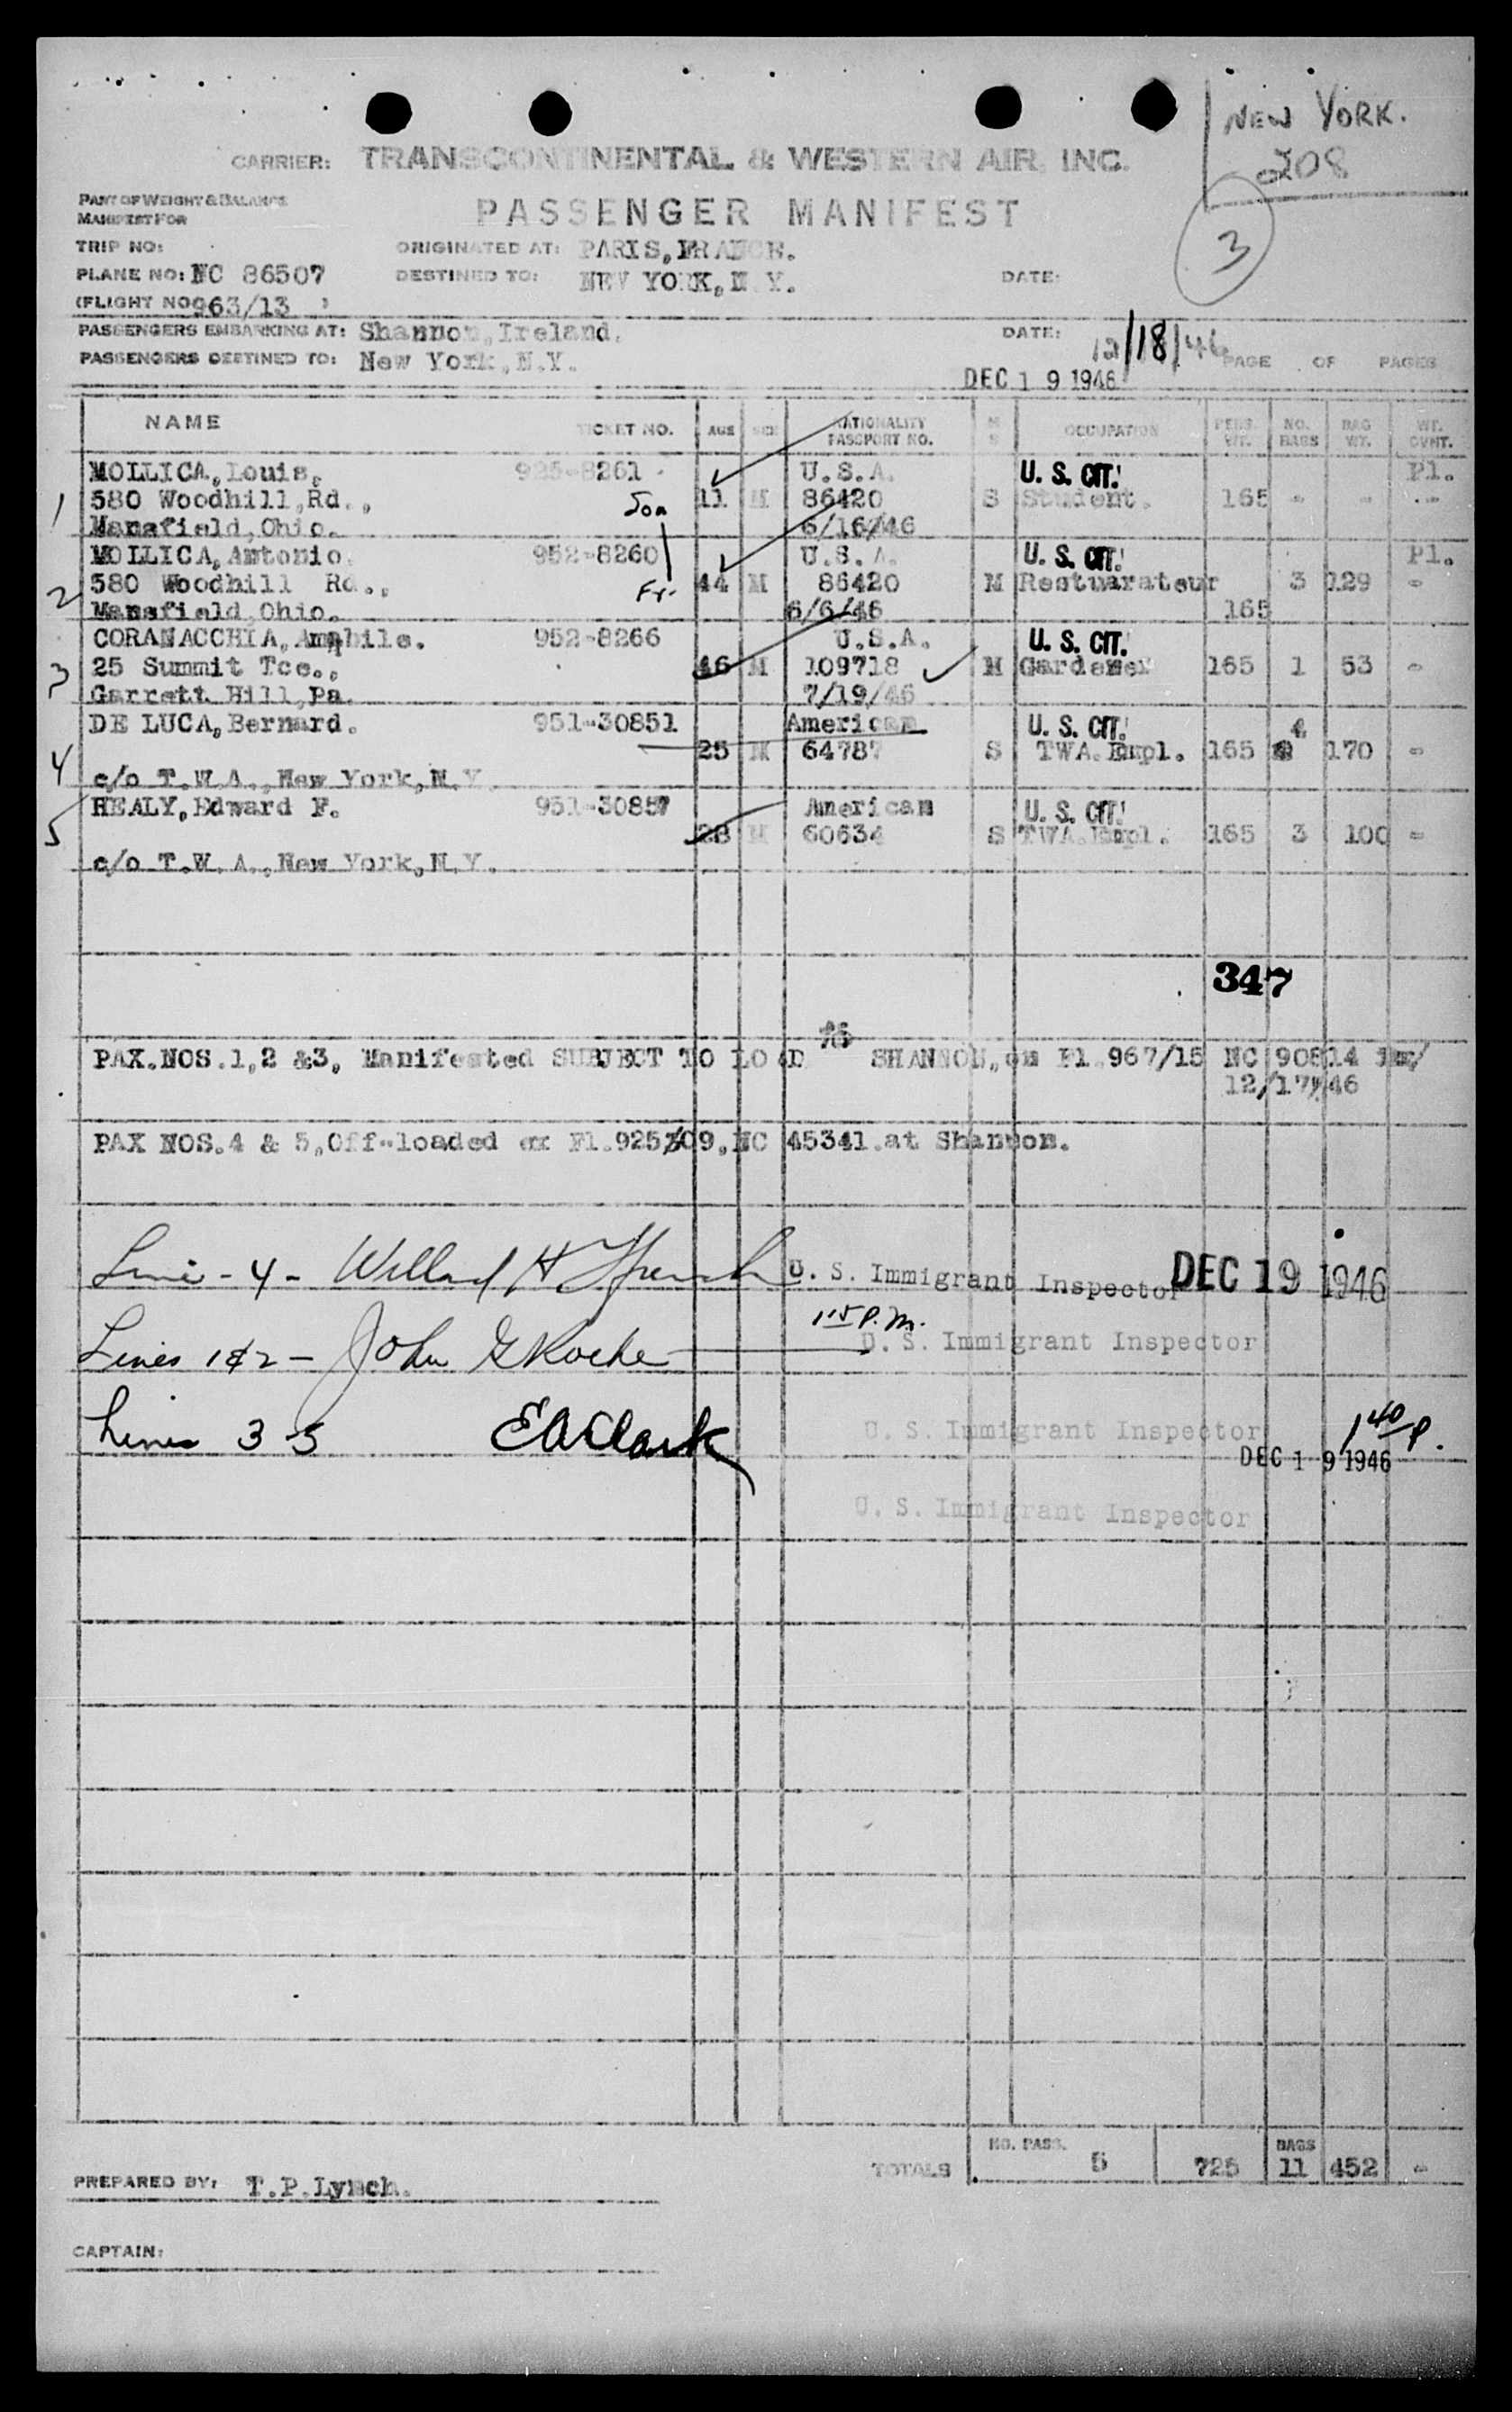 NEW YORK.
208
CARRIER: TRANSCONTINENTAL & WESTERN AIR, INC.
PART OF WEIGHT & BALANCE
MANIFEST FOR
PASSENGER MANIFEST
3
TRIP NO: ORIGINATED AT: PARIS, FRANCE.
PLANE NO: NC 86507 DESTINED TO: NEW YORK, N.Y. DATE:
(FLIGHT NO 963/13 )
PASSENGERS EMBARKING AT: Shannon, Ireland. DATE: 12/18/46
PASSENGERS DESTINED TO: New York, N.Y. PAGE OF PAGES
DEC 19 1946
NAME TICKET NO. AGE SEX NATIONALITY PASSPORT NO. M S OCCUPATION PERS. WT. NO. BAGS BAG WT. WT. OVHT.
MOLLICA, Louis. 925-8261 U.S.A. U. S. CIT. Pl.
1 580 Woodhill, Rd., Son 11 M 86420 S Student. 165 - - -
Mansfield, Ohio. 6/16/46
MOLLICA, Antonio. 952-8260 U.S.A. U. S. CIT. Pl.
2 580 Woodhill Rd., Fr. 44 M 86420 M Restuarateur 3 129 -
Mansfield, Ohio. 6/6/46 165
CORANACCHIA, Amabile. 952-8266 U.S.A. U. S. CIT.
3 25 Summit Tce., 46 M 109718 M Gardener 165 1 53 -
Garrett Hill, Pa. 7/19/46
DE LUCA, Bernard. 951-30851 American U. S. CIT. 4
4 25 M 64787 S TWA. Empl. 165 170 -
c/o T.W.A., New York, N.Y.
HEALY, Edward F. 951-30857 American U. S. CIT.
5 28 M 60634 S TWA. Empl. 165 3 100 -
c/o T.W.A., New York, N.Y.
347
PAX.NOS.1,2 &3, Manifested SUBJECT TO LOAD SHANNON, on Fl.967/15 NC 90814
12/17/46
PAX NOS.4 & 5, Off-loaded ex Fl.925/09, NC 45341.at Shannon.
Line - 4 - Willard H French U. S. Immigrant Inspector DEC 19 1946
1 15 P.M.
Lines 1 & 2 - John G Roche U. S. Immigrant Inspector
Lines 3-5 E A Clark U. S. Immigrant Inspector 1 40 P.
DEC 19 1946
U. S. Immigrant Inspector
TOTALS NO. PASS. 5 725 BAGS 11 452 -
PREPARED BY: T.P.Lynch.
CAPTAIN: